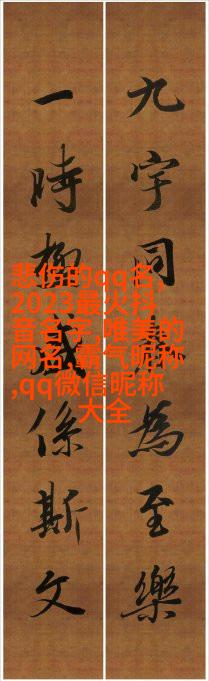 九宇同為至樂
一時係斯文
悲伤的qq名,
2023最火抖
音名字,唯美的
网名,霸气昵称
,qq微信昵称
大全